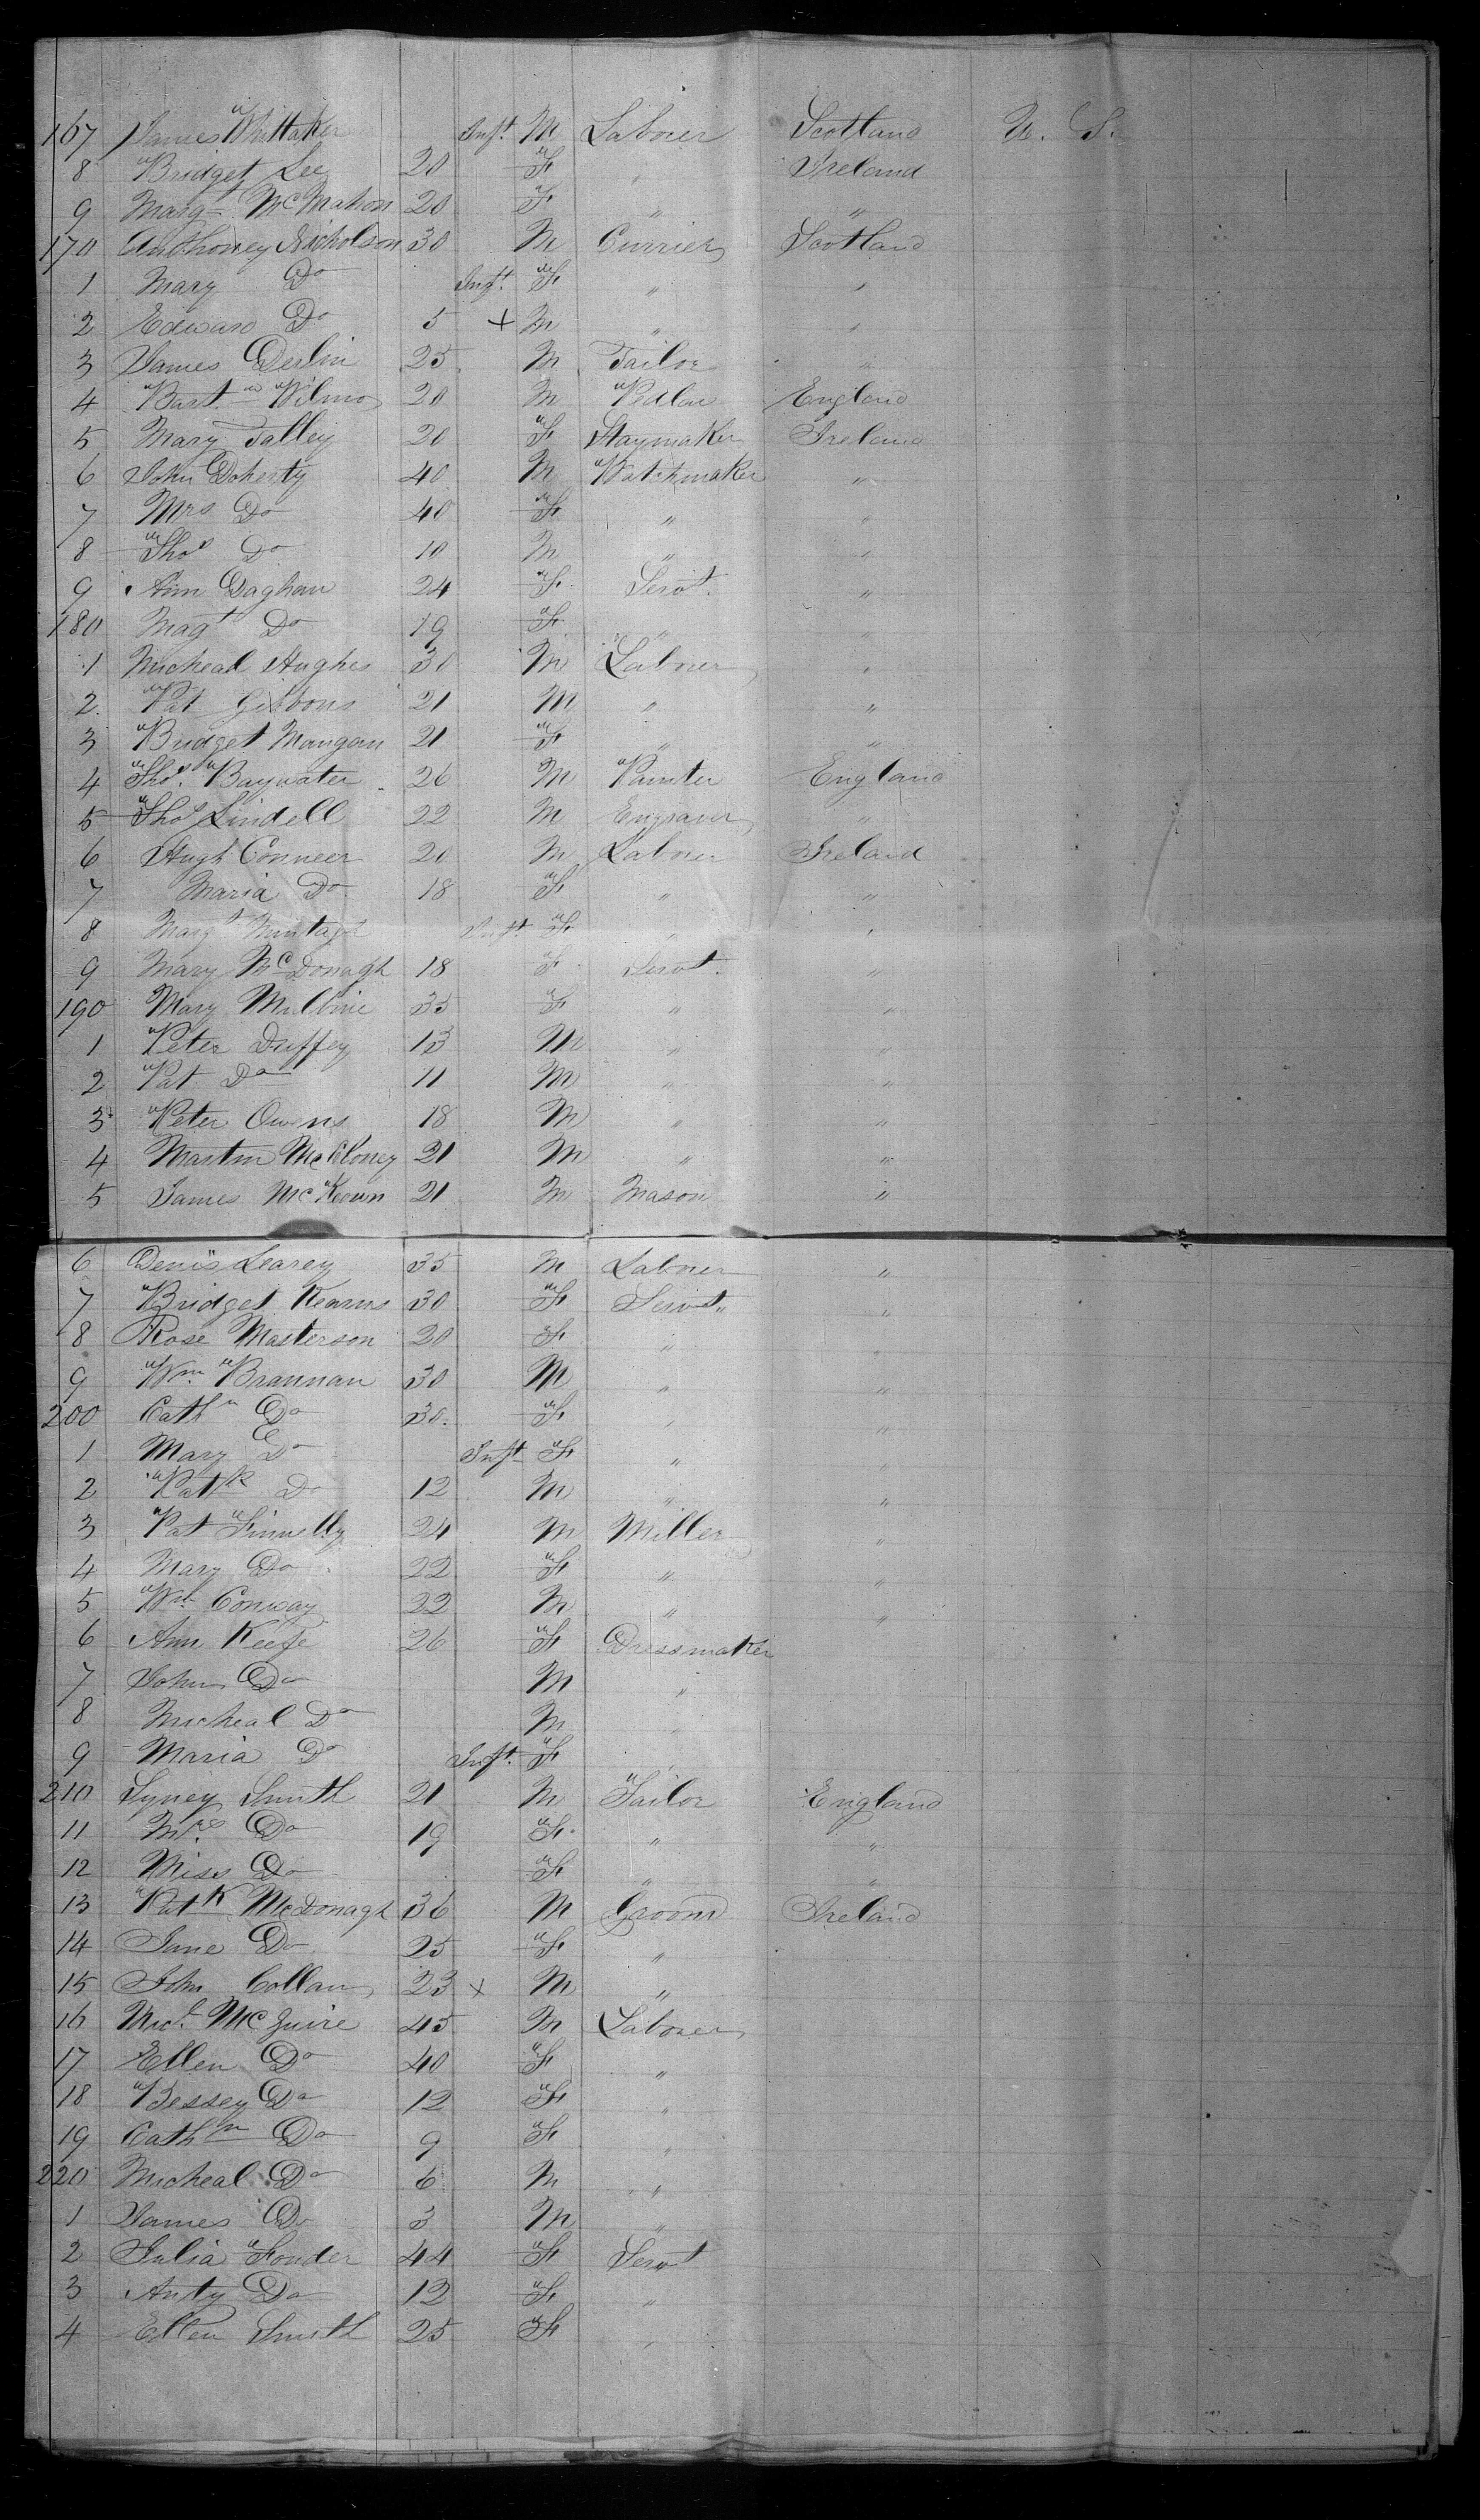 167 James Whittaker Inft. M Laborer Scotland U. S.
8 Bridget Lee 20 F " Ireland
9 Margt McMahon 20 F " "
170 Anthoney Nicholson 30 M Currier Scotland
1 Mary Do Inft. F " "
2 Edward Do 5 + M " "
3 James Devlin 25 M Tailor "
4 Bart. Wilmo 20 M Pedlar England
5 Mary Talley 20 F Staymaker Ireland
6 John Doherty 40 M Watchmaker "
7 Mrs Do 40 F " "
8 Thos Do 10 M " "
9 Ann Gaghan 24 F Servt. "
180 Magt Do 19 F " "
1 Micheal Hughes 30 M Laborer "
2 Pat Gibbons 21 M " "
3 Bridget Mangan 21 F " "
4 Thos. Baywater 26 M Painter England
5 Thos Lindell 22 M Engraver "
6 Hugh Conneer 20 M Laborer Ireland
7 Maria Do 18 F " "
8 Margt Inft. F " "
9 Mary McDonagh 18 F Servt. "
190 Mary Milbine 35 F " "
1 Peter Duffey 13 M " "
2 Pat Do 11 M " "
3 Peter Owens 18 M " "
4 Martin McCloney 21 M " "
5 James McKeown 21 M Mason "
6 Denis Learey 35 M Laborer "
7 Bridget Kearns 30 F Servt "
8 Rose Masterson 20 F " "
9 Wm. Brannan 30 M " "
200 Cathn Do 30. F " "
1 Mary Do Inft F " "
2 Patk Do 12 M " "
3 Pat Finnelly 24 M Miller "
4 Mary Do 22 F " "
5 Wm Conway 22 M " "
6 Ann Keefe 26 F Dressmaker
7 John Do M "
8 Micheal Do M "
9 Maria Do Inft. F "
210 Syney Smith 21 M Tailor England
11 Mrs Do 19 F " "
12 Miss Do F " "
13 Patk McDonagh 36 M Groom Ireland
14 Jane Do 25 F "
15 John Collan 23 + M "
16 Micl. McGuire 45 M Laborer
17 Ellen Do 40 F "
18 Bessey Do 12 F "
19 Cathn Do 9 F "
220 Micheal Do 6 M "
1 James Do 3 M "
2 Julia Fonder 44 F Servt
3 Anty Do 12 F "
4 Ellen Smith 25 F "